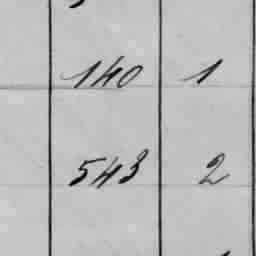 140 1
543 2